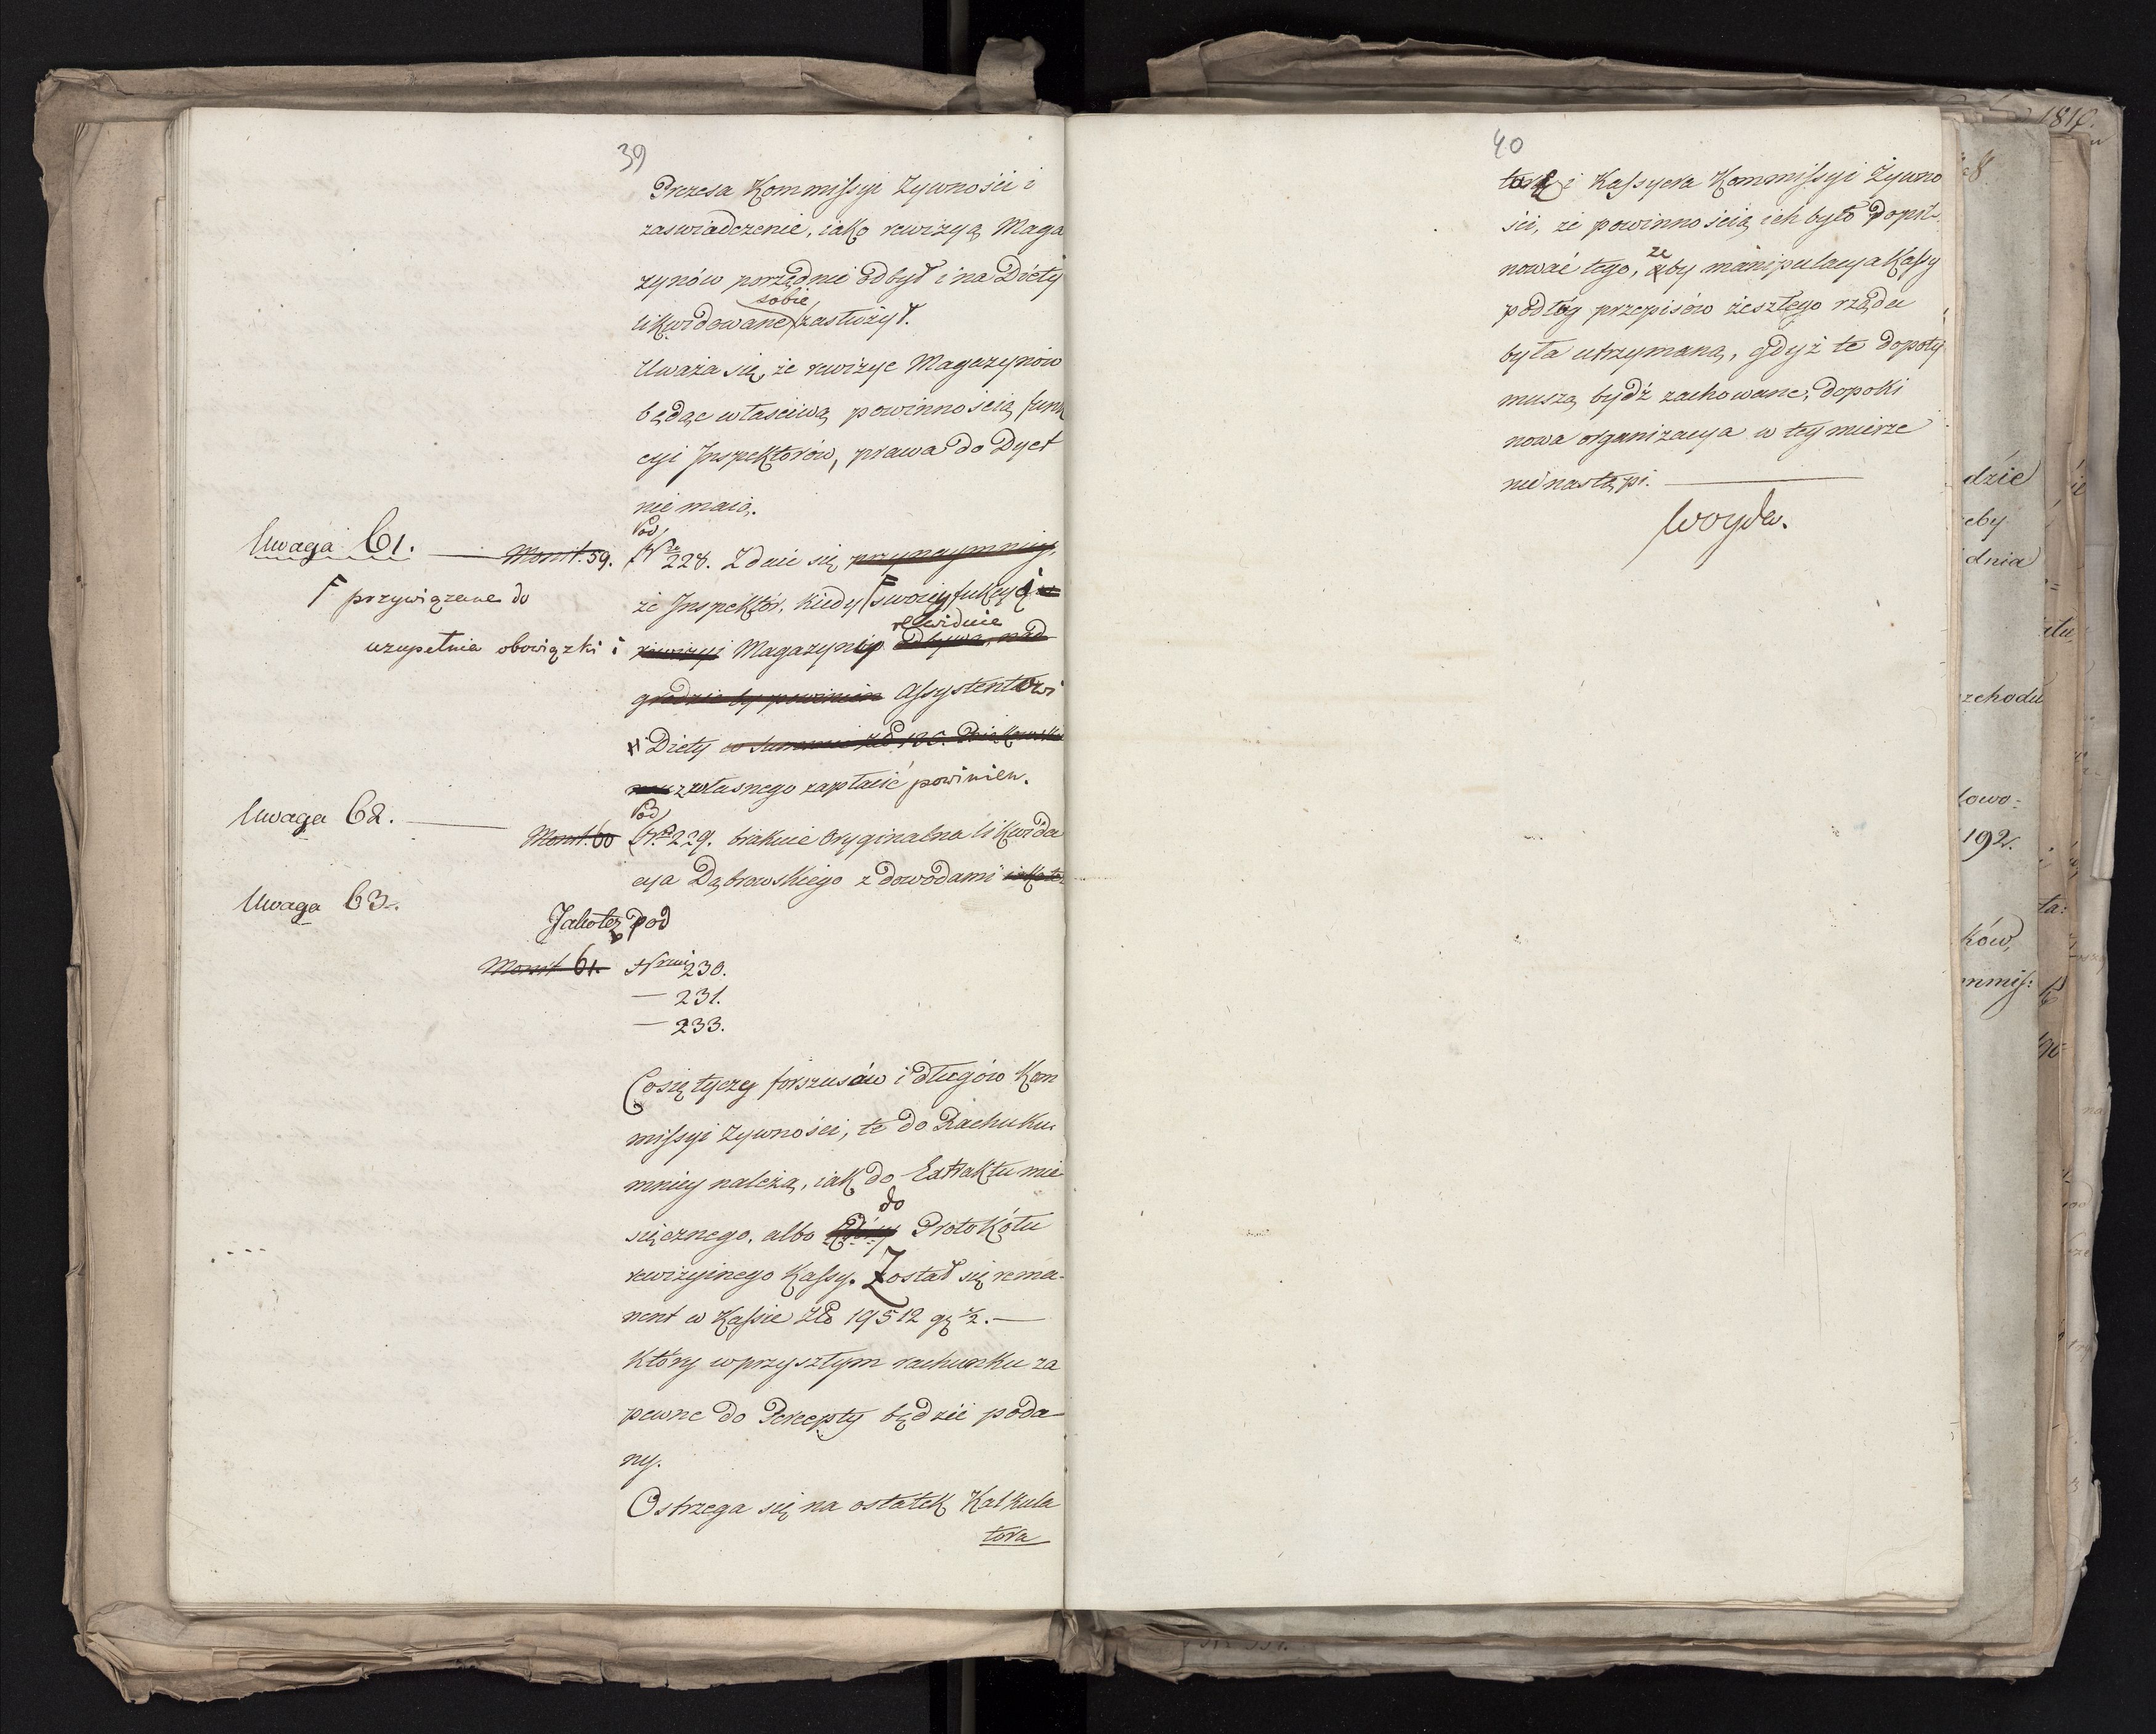 39
Prezesa Kommissyi Zywności i
zaswiadczenie, iako rewizyą Maga
zynów porządnie odbył i na Diety
sobie
likwidowane zasłużył.
Uważa się, że rewizye Magazynow
będąc właściwą powinnością funk
cyi Inspektorów, prawa do Dyet
nie maią.
Pod
Uwaga 61. Monit. 59. Nro 228. Zdaie się przynaymniey,
F przywiązane do
że Inspektór, kiedy F swoiey fukcyi
rewiduie
uzupełnia obowiązki i rewizyi Magazyny odbywa, nad
grodzić by powinien Assystentowi
Diety w Summie Złł 180.
z własnego zapłacić powinien.
Pod
Uwaga 62. Monit. 60 Nro 229. brakuie Oryginalna likwida
cya Dąbrowskiego z dowodami iakoteż
Uwaga 63.
Jakoteż pod
Monit 61. Nrmi 230.
— 231.
— 233.
Co się tyczy forszusów i długów Kom
missyi Zywności, te do Rachuku
mniey należą, iak do Extraktu mie
do
sięcznego, albo Protokółu
rewizyinego Kassy. Został się rema-
nent w Kassie Złł 19512 gr ½. —
Który w przyszłym rachunku za
pewne do Percepty będzie poda
ny.
Ostrzega się na ostatek Kalkula
tora
40
tora i Kassyera Kommissyi Żywno
ści, że powinnością ich było dopil-
że
nować tego, aby manipulacya Kassy
podłóg przepisów zeszłego rządu
była utrzymaną, gdyż te dopoty
muszą bydź zachowane, dopoki
nowa organizacya w tey mierze
nie nastąpi.
Woyda.
1817.
8
dzie
eby
dnia
zchodu
łowo=
192.
ta:
ków,
mmiss: